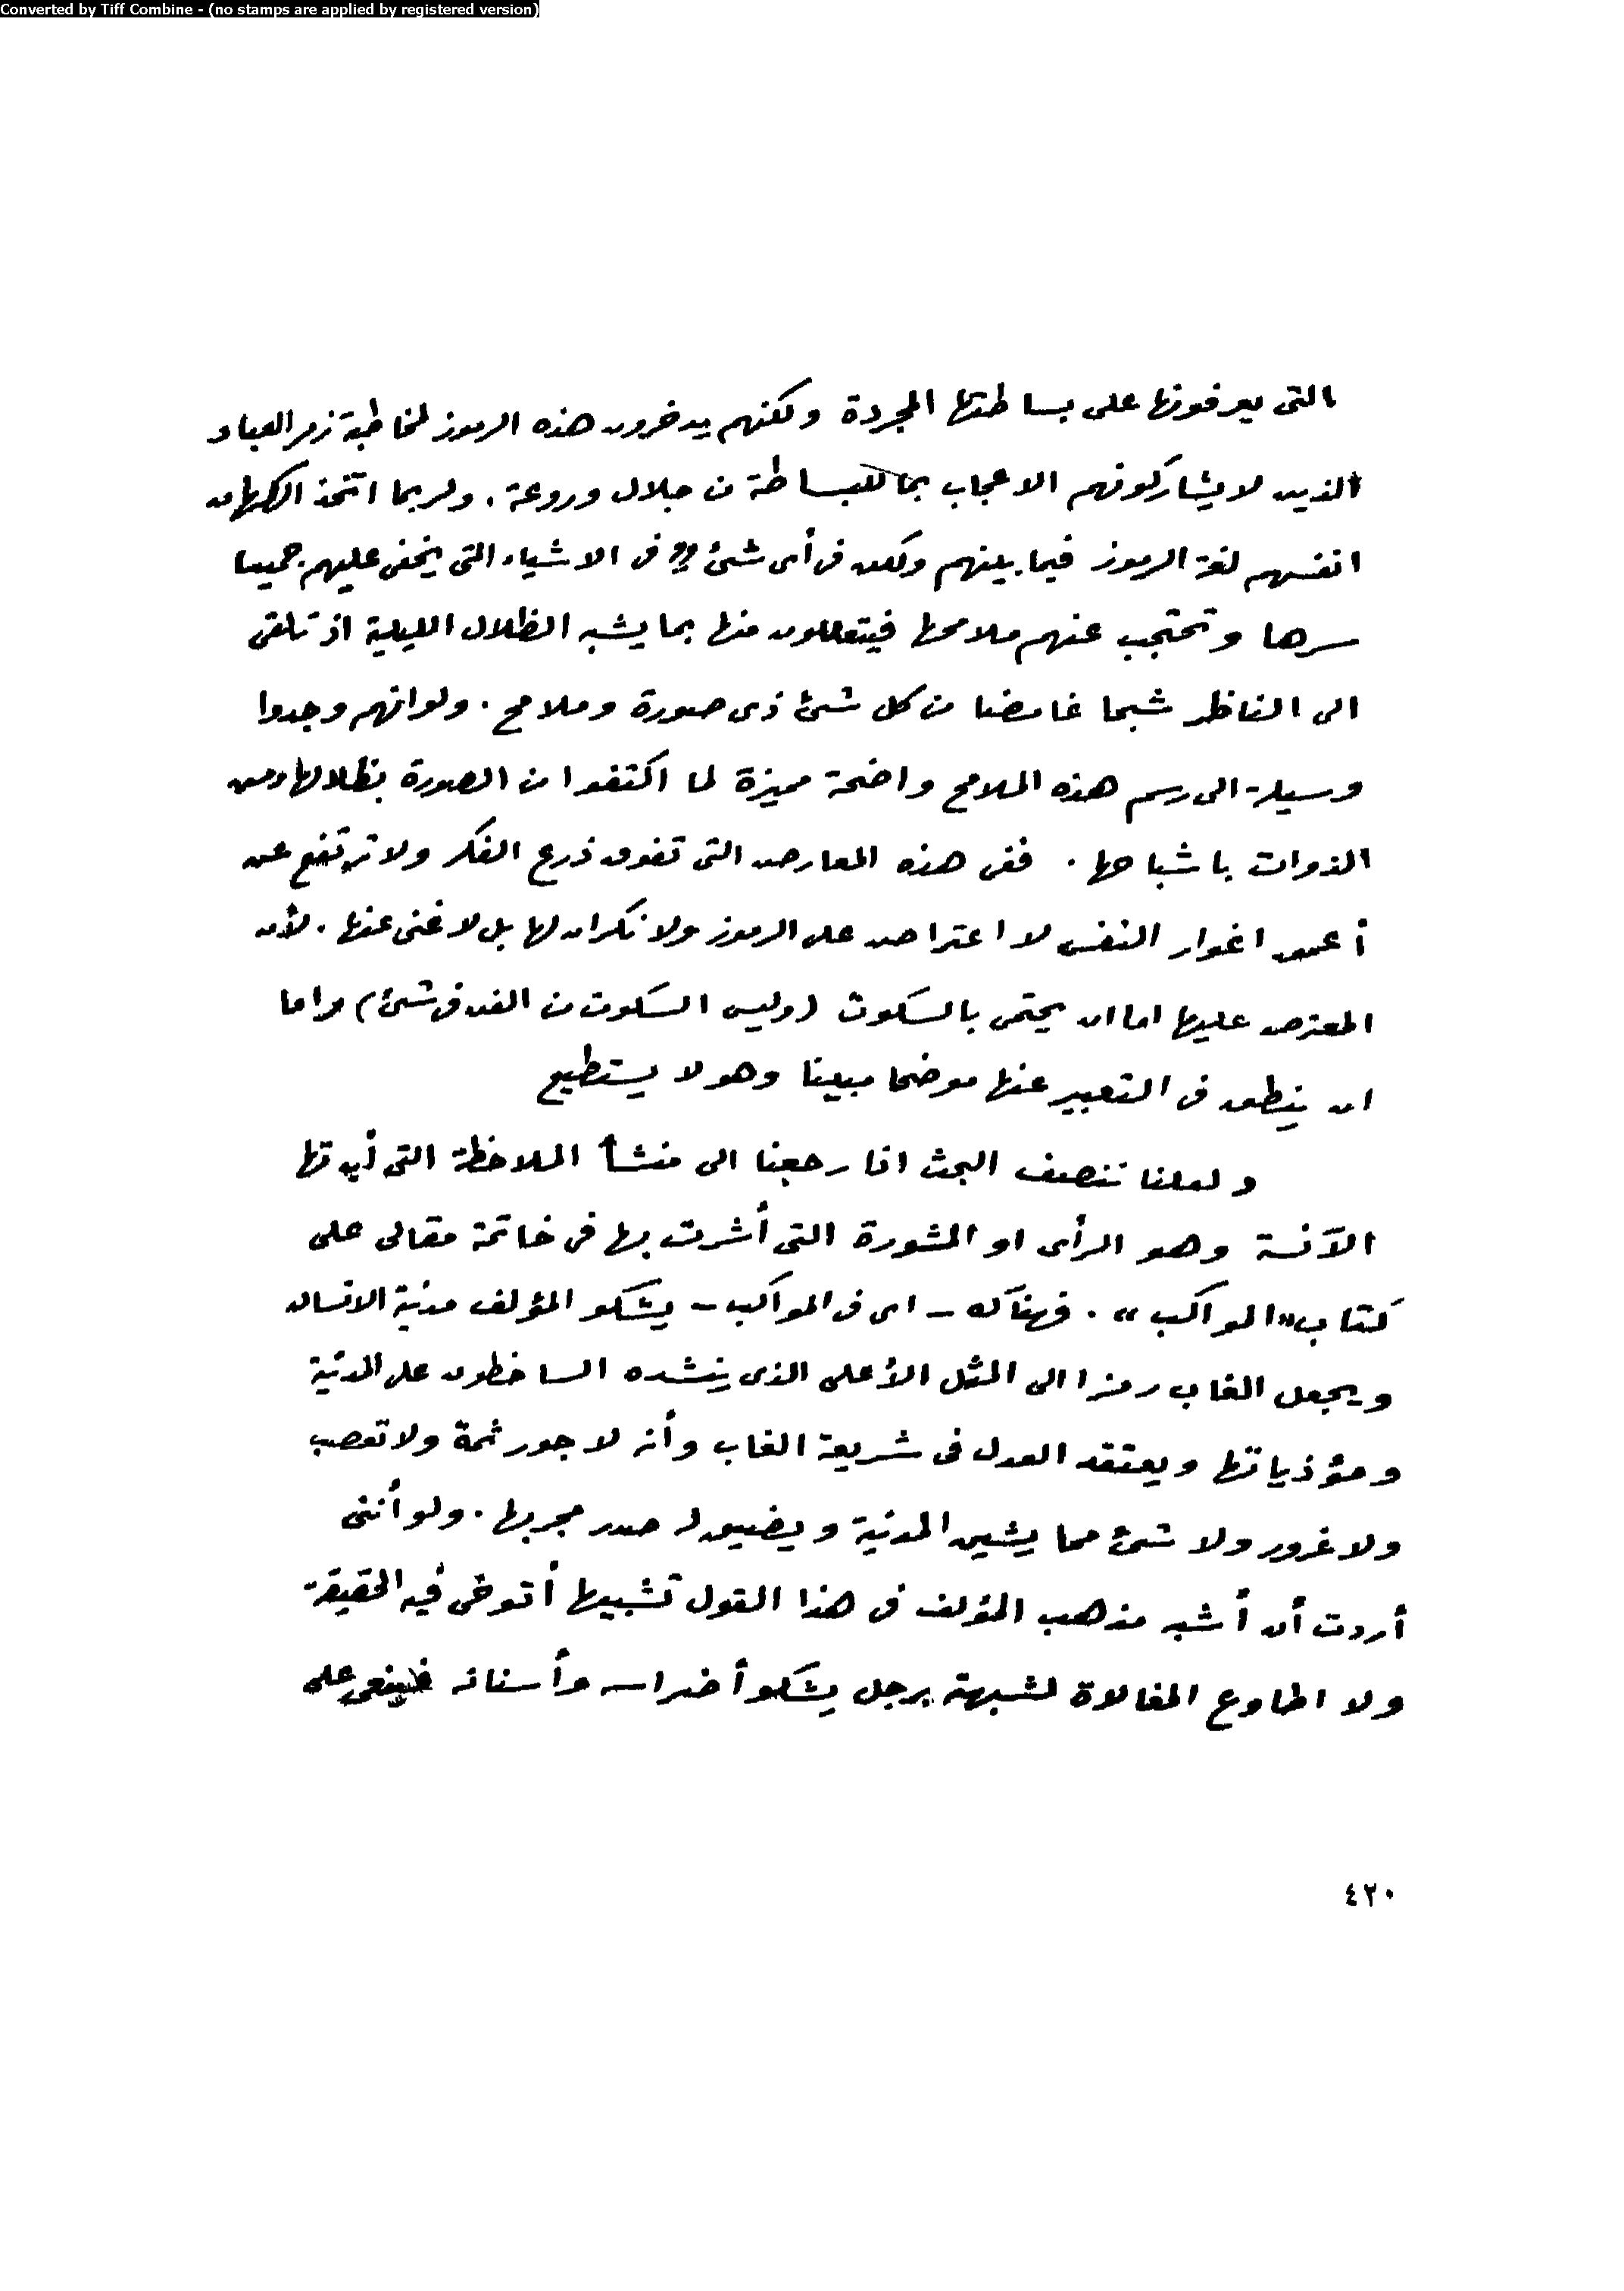 Converted by Tiff Combine - (no stamps are applied by registered version)
التى يعرفونها على بساطتها المجردة ولكنهم يدخرون هذه الرموز لمخاطبة زمر العباد
الذين لا يشاركونهم الاعجاب بما للبساطة من جلال وروعة . ولربما اتخذ الكهان
انفسهم لغة الرموز فيما بينهم ولكن فى أى شئ ؟ فى الاشياء التى يخفى عليهم جميعا
سرها وتحتجب عنهم ملامحها فيتعللون منها بما يشبه الظلال الليلية اذ تلقى
الى الناظر شبحا غامضا من كل شئ ذى صورة وملامح . ولو انهم وجدوا
وسيلة الى رسم هذه الملامح واضحة مميزة لما اكتفوا من الصورة بظلالها ومن
الذوات باشباحها . ففى هذه المعارض التى تفوق ذرع الفكر ولا ترتفع عن
أعمق اغوار النفس لا اعتراض على الرموز ولا نكران لها بل لا غنى عنها . لأن
المعترض عليها اما ان يحتمى بالسكوت (وليس السكوت من الفن فى شئ) واما
ان ينطق فى التعبير عنها موضحا مبينا وهو لا يستطيع
ولعلنا ننصف البحث اذا رجعنا الى منشأ الملاحظة التى أبدتها
الآنسة وهو الرأى او المشورة التى أشرت بها فى خاتمة مقالى على
كتاب «المواكب» . فهناك - اى فى المواكب - يشكو المؤلف مدنية الانسان
ويجعل الغاب رمزا الى المثل الأعلى الذى ينشده الساخطون على المدنية
ومؤذياتها ويعتقد العدل فى شريعة الغاب وأنه لا جور ثمة ولا تعصب
ولا غرور ولا شئ مما يشين المدنية ويضيق له صدر مجربها . ولو أننى
أردت أن أشبه مذهب المؤلف فى هذا القول تشبيها أتوخى فيه الحقيقة
ولا اطاوع المغالاة لشبهته برجل يشكو أضراسه وأسنانه فينعى على
٤٢٠